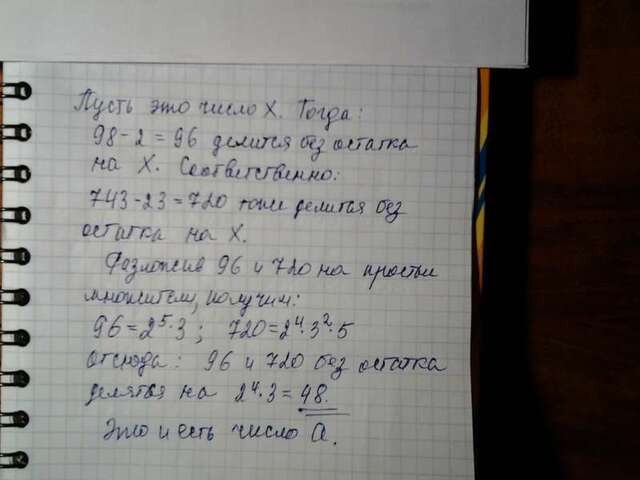 Пусть это число X. Тогда:
98-2=96 делится без остатка
на X. Соответственно:
743-23=720 тоже делится без
остатка на X.
Разложив 96 и 720 на простые
множители, получим:
96=2⁵·3; 720=2⁴·3²·5
Отсюда: 96 и 720 без остатка
делятся на 2⁴·3=48.
Это и есть число a.